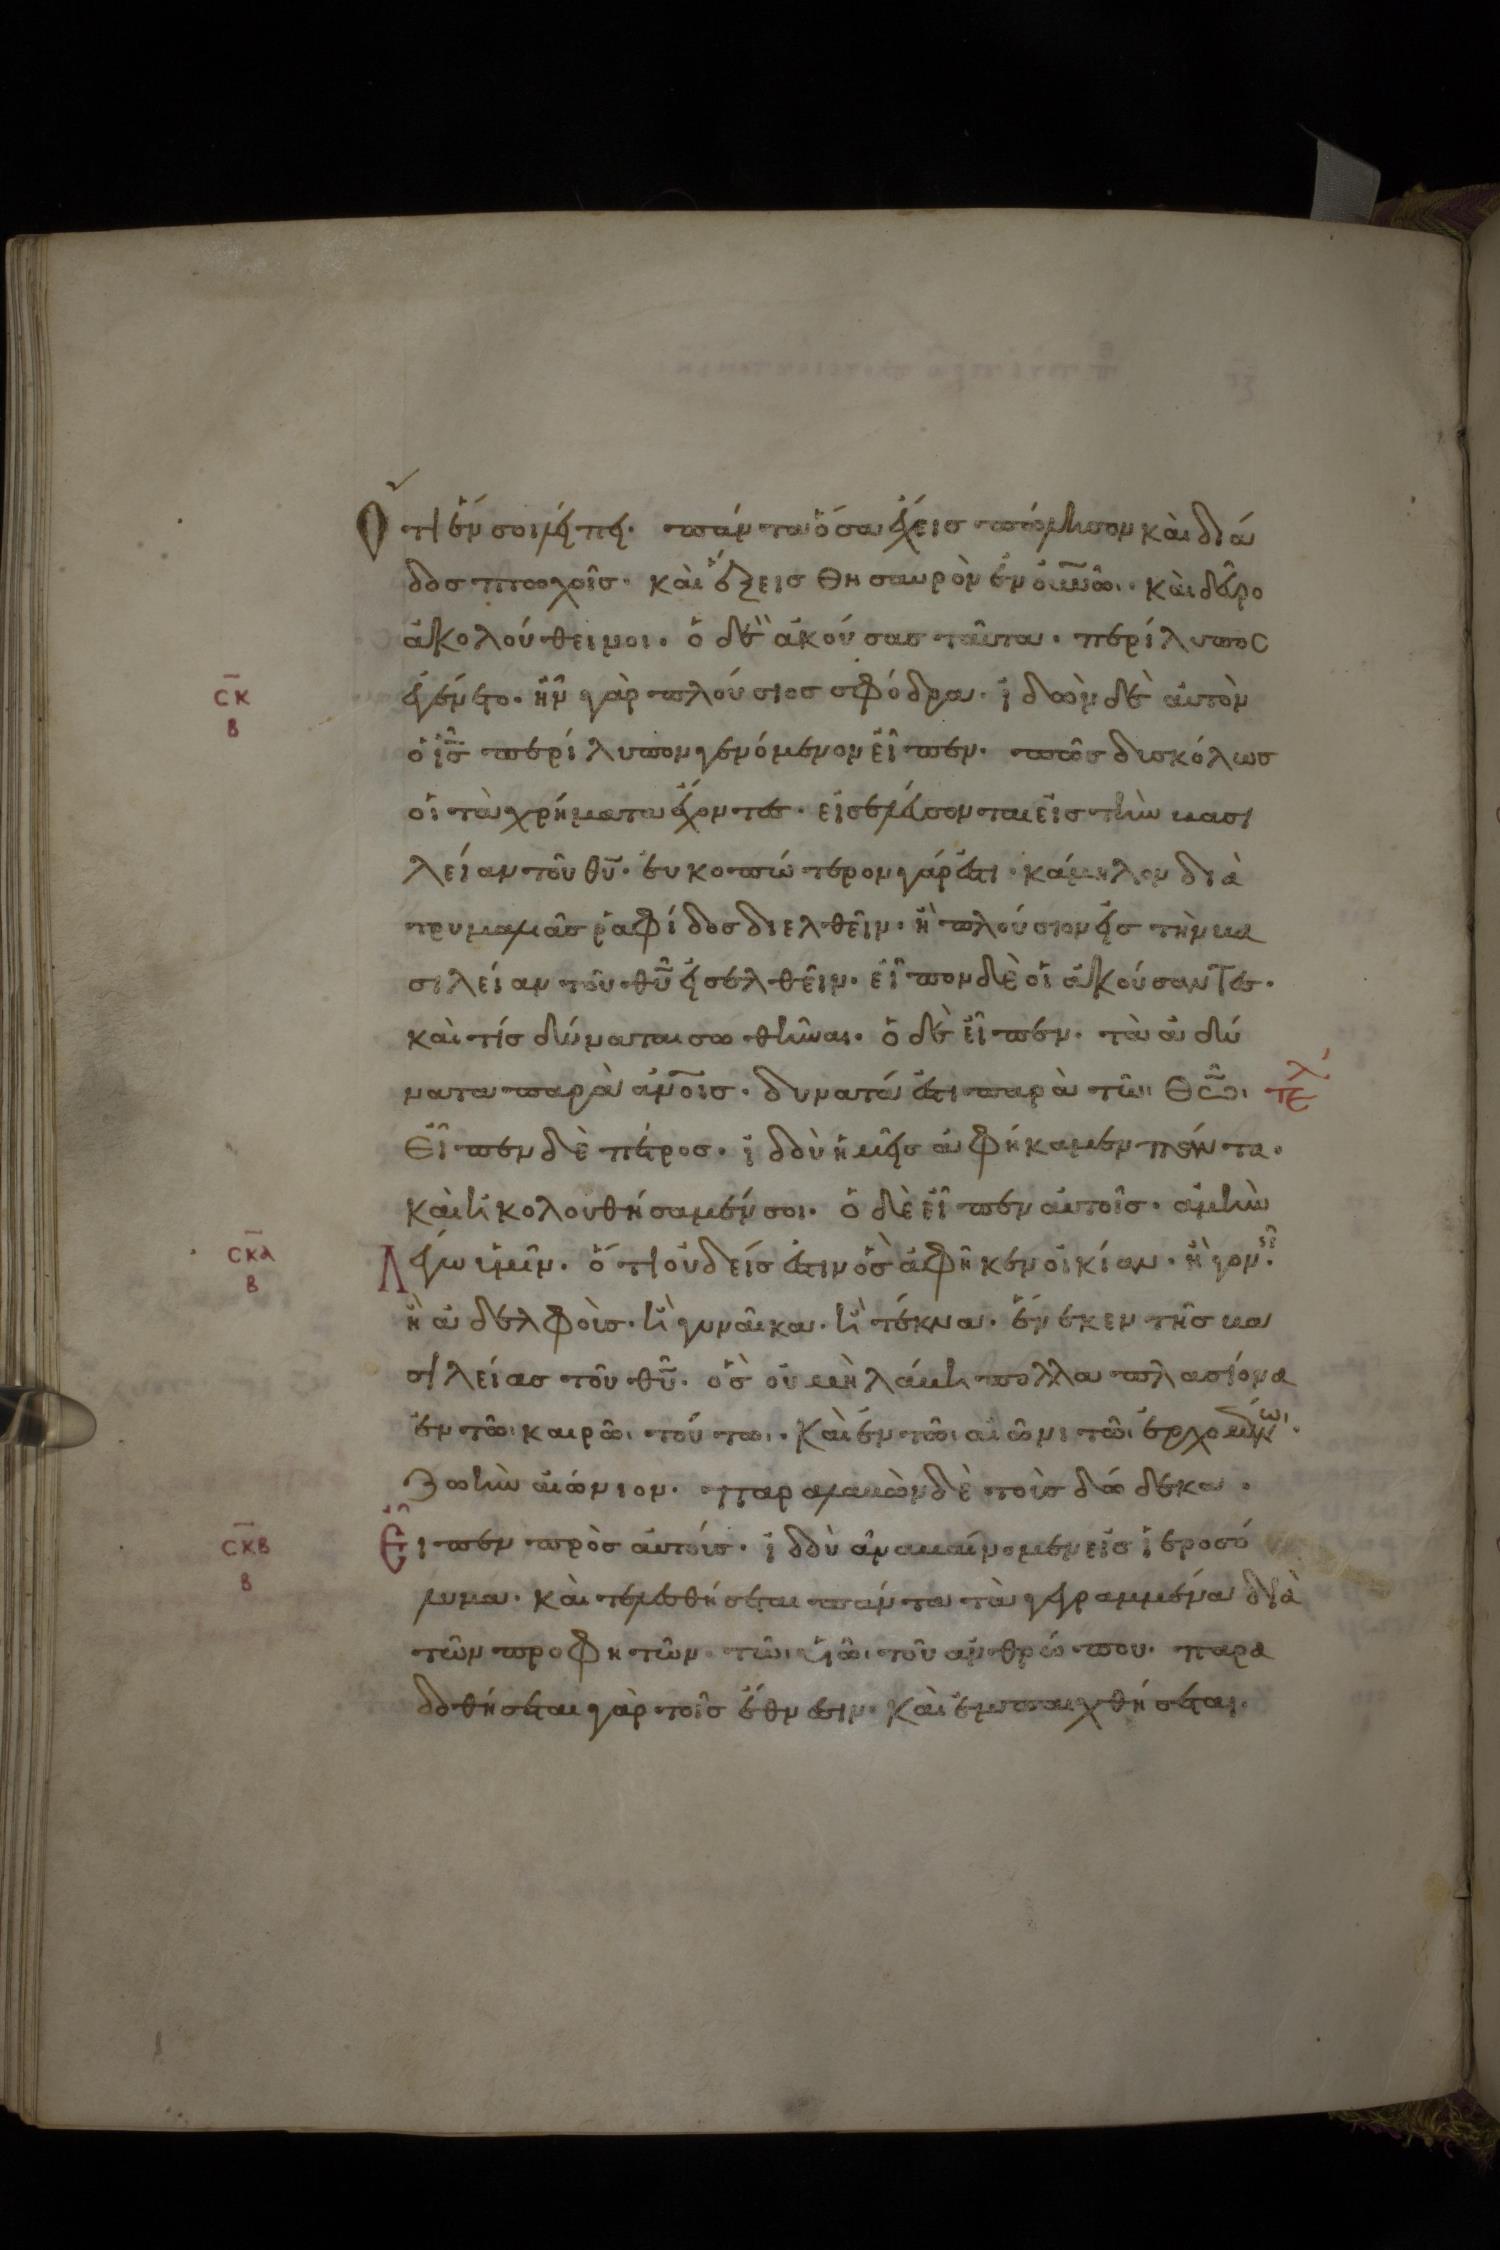 Ὅτι ἕν σοι λείπει. πάντα ὅσα ἔχεις πώλησον καὶ διά
δος πτωχοῖς. καὶ ἕξεις θησαυρὸν ἐν οὐνῶι. καὶ δεῦρο
ἀκολούθει μοι. ὁ δὲ ἀκούσας ταῦτα. περίλυπος
ἐγένετο. ἦν γὰρ πλούσιος σφόδρα. ἰδὼν δὲ αὐτὸν
σκ
β
ὁ ις περίλυπον γενόμενον εἶπεν. πῶς δισκόλως
οἱ τὰ χρήματα ἔχοντες. εἰσελεύσονται εἰς τὴν βασι
λείαν τοῦ θυ. εὐκοπώτερον γάρ ἐστι. κάμηλον διὰ
τρυμαλιᾶς ῥαφίδος διελθεῖν. ἢ πλούσιον εἰς τὴν βα
σιλείαν τοῦ θυ εἰσελθεῖν. εἶπον δὲ οἱ ἀκούσαντες.
καὶ τίς δύναται σωθῆναι. ὁ δὲ εἶπεν. τὰ ἀδύ
νατα παρὰ ἀνοις. δυνατά ἐστι παρὰ τῶι Θῶι τελ
Εἶπεν δὲ πέτρος. ἰδοὺ ἡμεῖς ἀφήκαμεν πάντα.
καὶ ἠκολουθήσαμέν σοι. ὁ δὲ εἶπεν αὐτοῖς. ἀμὴν
σκα
β
Λέγω ὑμῖν. ὅτι οὐδείς ἐστιν ὃς ἀφῆκεν οἰκίαν. ἢ γονεῖς.
ἢ ἀδελφοὺς. ἢ γυναῖκα. ἢ τέκνα. ἕνεκεν τῆς βα
σιλείας τοῦ θυ. ὃς οὐ μὴ λάβη πολλαπλασίονα
ἐν τῶι καιρῶι τούτωι. καὶ ἐν τῶι αἰῶνι τῶι ἐρχομένωι.
ζωὴν αἰώνιον. παραλαβὼν δὲ τοὺς δώδεκα.
σκβ
β
Εἶπεν πρὸς αὐτούς. ἰδοὺ ἀναβαίνομεν εἰς ἱεροσό
λυμα. καὶ τελεσθήσεται πάντα τὰ γεγραμμένα διὰ
τῶν προφητῶν τῶι υἱῶι τοῦ ἀνθρώπου. παρα
δοθήσεται γὰρ τοῖς ἔθνεσιν. καὶ ἐμπαιχθήσεται.